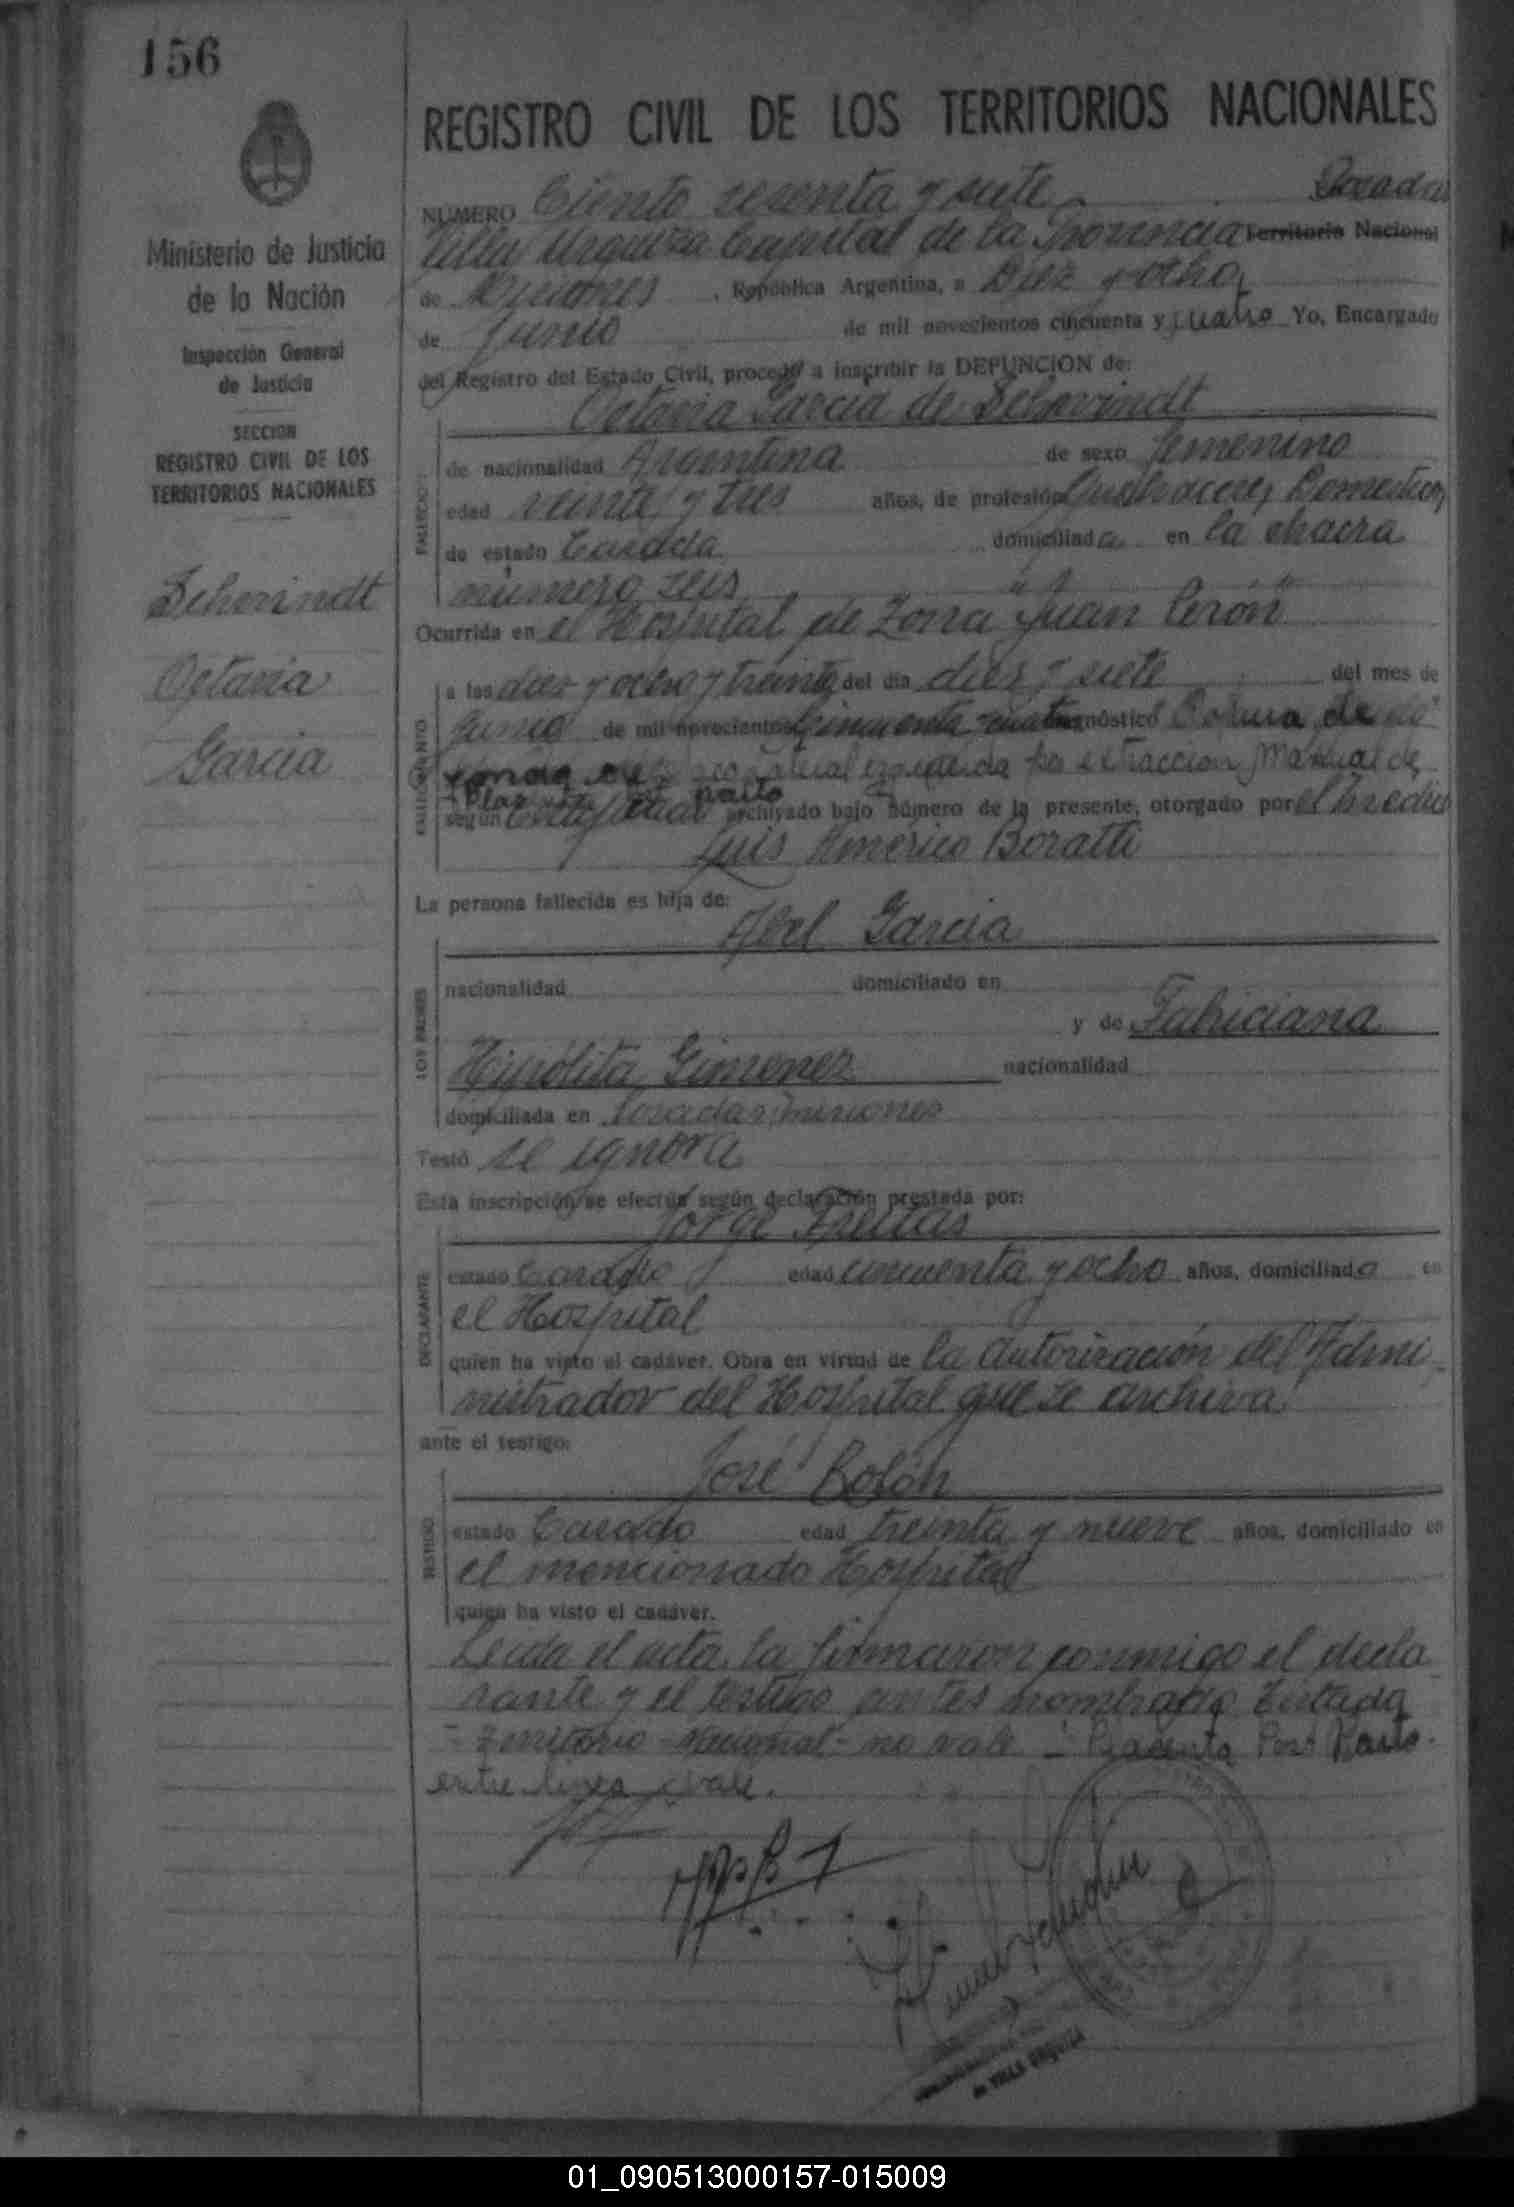 156
Ministerio de Justicia
de la Nación
Inspección General
de Justicia
SECCION
REGISTRO CIVIL DE LOS
TERRITORIOS NACIONALES
Schvindt
Octavia
Garcia
REGISTRO CIVIL DE LOS TERRITORIOS NACIONALES
NUMERO Ciento sesenta y siete Posadas
Villa Urquiza Capital de la Provincia Territorio Nacional
de Misiones, República Argentina, a Diez y ocho
de Junio de mil novecientos cincuenta y cuatro Yo, Encargado
del Registro del Estado Civil, procedo a inscribir la DEFUNCION de:
Octavia Garcia de Schvindt
FALLECIDO
de nacionalidad Argentina de sexo femenino
edad veinte y tres años, de profesión Quehaceres Domesticos
de estado Casada domiciliada en la chacra
número seis
Ocurrida en el Hospital de Zona "Juan Cerón"
FALLECIMIENTO
a las diez y ocho y treinta del día diez y siete del mes de
Junio de mil novecientos cincuenta cuatro diagnóstico
izquierda por extraccion Manual de
Placenta Post parto
según archivado bajo número de la presente, otorgado por el
Luis Américo Boratti
La persona fallecida es hija de:
Abel Garcia
LOS PADRES
nacionalidad domiciliado en
y de Fabriciana
Hipólita Gimenez nacionalidad
domiciliada en Posadas Misiones
Testó se ignora
Esta inscripción se efectúa según declaración prestada por:
Jorge Freitas
DECLARANTE
estado Casado edad cincuenta y ocho años, domiciliado en
el Hospital
quien ha visto el cadáver. Obra en virtud de la autorización del Admi-
nistrador del Hospital que se archiva
ante el testigo:
José Bolón
TESTIGO
estado Casado edad treinta y nueve años, domiciliado en
el mencionado Hospital
quien ha visto el cadáver.
Leida el acta, la firmaron conmigo el decla
rante y el testigo antes nombrado Testada
- Territorio - Nacional - no vale - Placenta Post Parto -
entre linea vale.
de VILLA URQUIZA
01_090513000157-015009